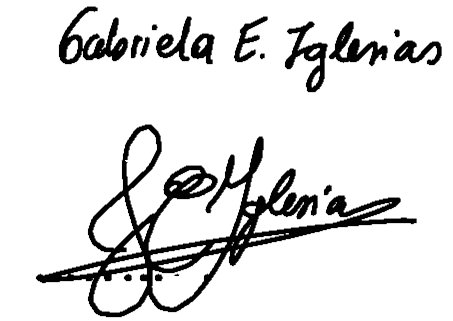 Gabriela E. Iglesias
Iglesias